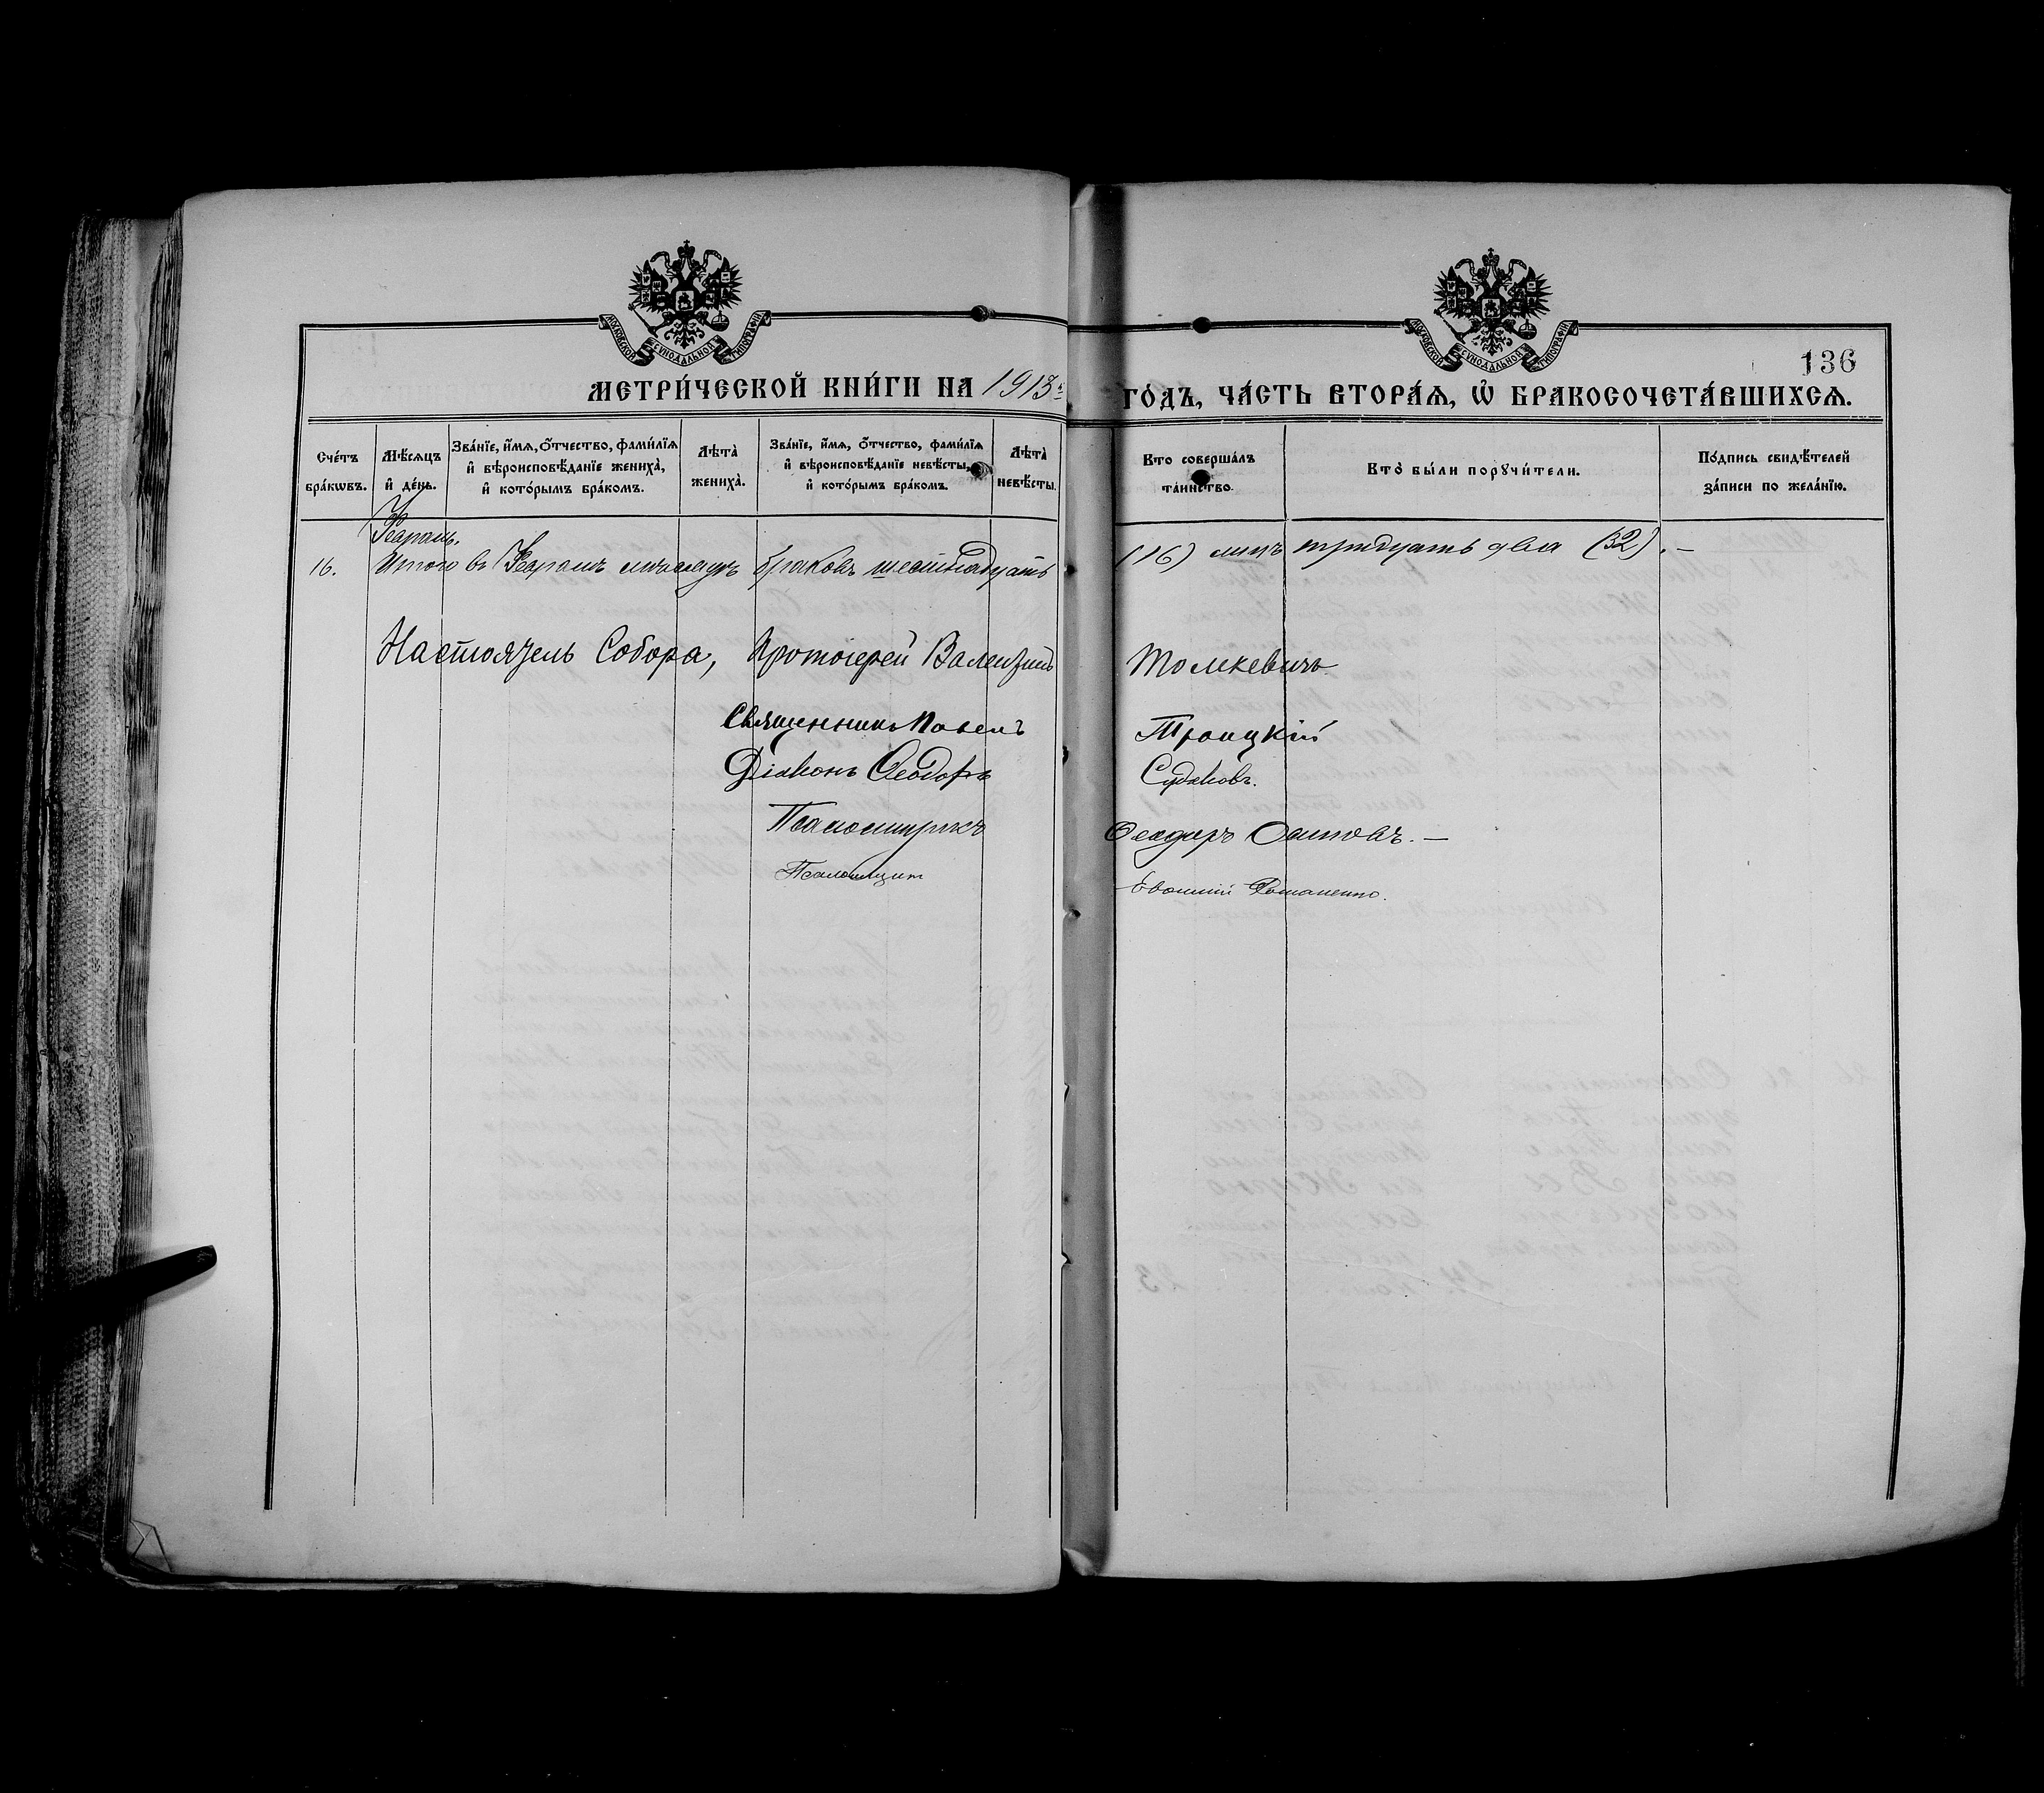 МОСКОВСКОЙ СѴНОДАЛЬНОЙ ТИПОГРАФІИ
МОСКОВСКОЙ СѴНОДАЛЬНОЙ ТИПОГРАФІИ
136
МЕТРИ́ЧЕСКОЙ КНИ́ГИ НА 1913 ГО́ДЪ, ЧА́СТЬ ВТОРА́Ѧ, Ѽ БРАКОСОЧЕТА́ВШИХСѦ.
Сче́тъ бра́кωвъ.
Мѣ́сѧцъ и҆ де́нь.
Зва́нїе, и҆́мѧ, ѻ҆́тчество, фами́лїѧ и҆ вѣроисповѣ́данїе жениха̀, и҆ кото́рымъ бра́комъ.
Лѣта̀ жениха̀.
Зва́нїе, и҆́мѧ, ѻ҆́тчество, фами́лїѧ и҆ вѣроисповѣ́данїе невѣ́сты, и҆ кото́рымъ бра́комъ.
Лѣта̀ невѣ́сты.
Кто соверша́лъ та́инство.
Кто̀ бы́ли порꙋчи́тели.
По́дпись свидѣ́телей за́писи по жела́нїю.
Февраль.
16. Итого въ Февралѣ мѣсяцѣ браковъ шестнадцать (16) лицъ тридцать два (32). —
Настоятель Собора, Протоіерей Валентинъ Томкевичъ
Священникъ Павелъ Троицкій
Діаконъ Ѳеодоръ Судаковъ.
Псаломщикъ Ѳеодоръ Осиповъ. —
Псаломщикъ Евфимій Романенко.